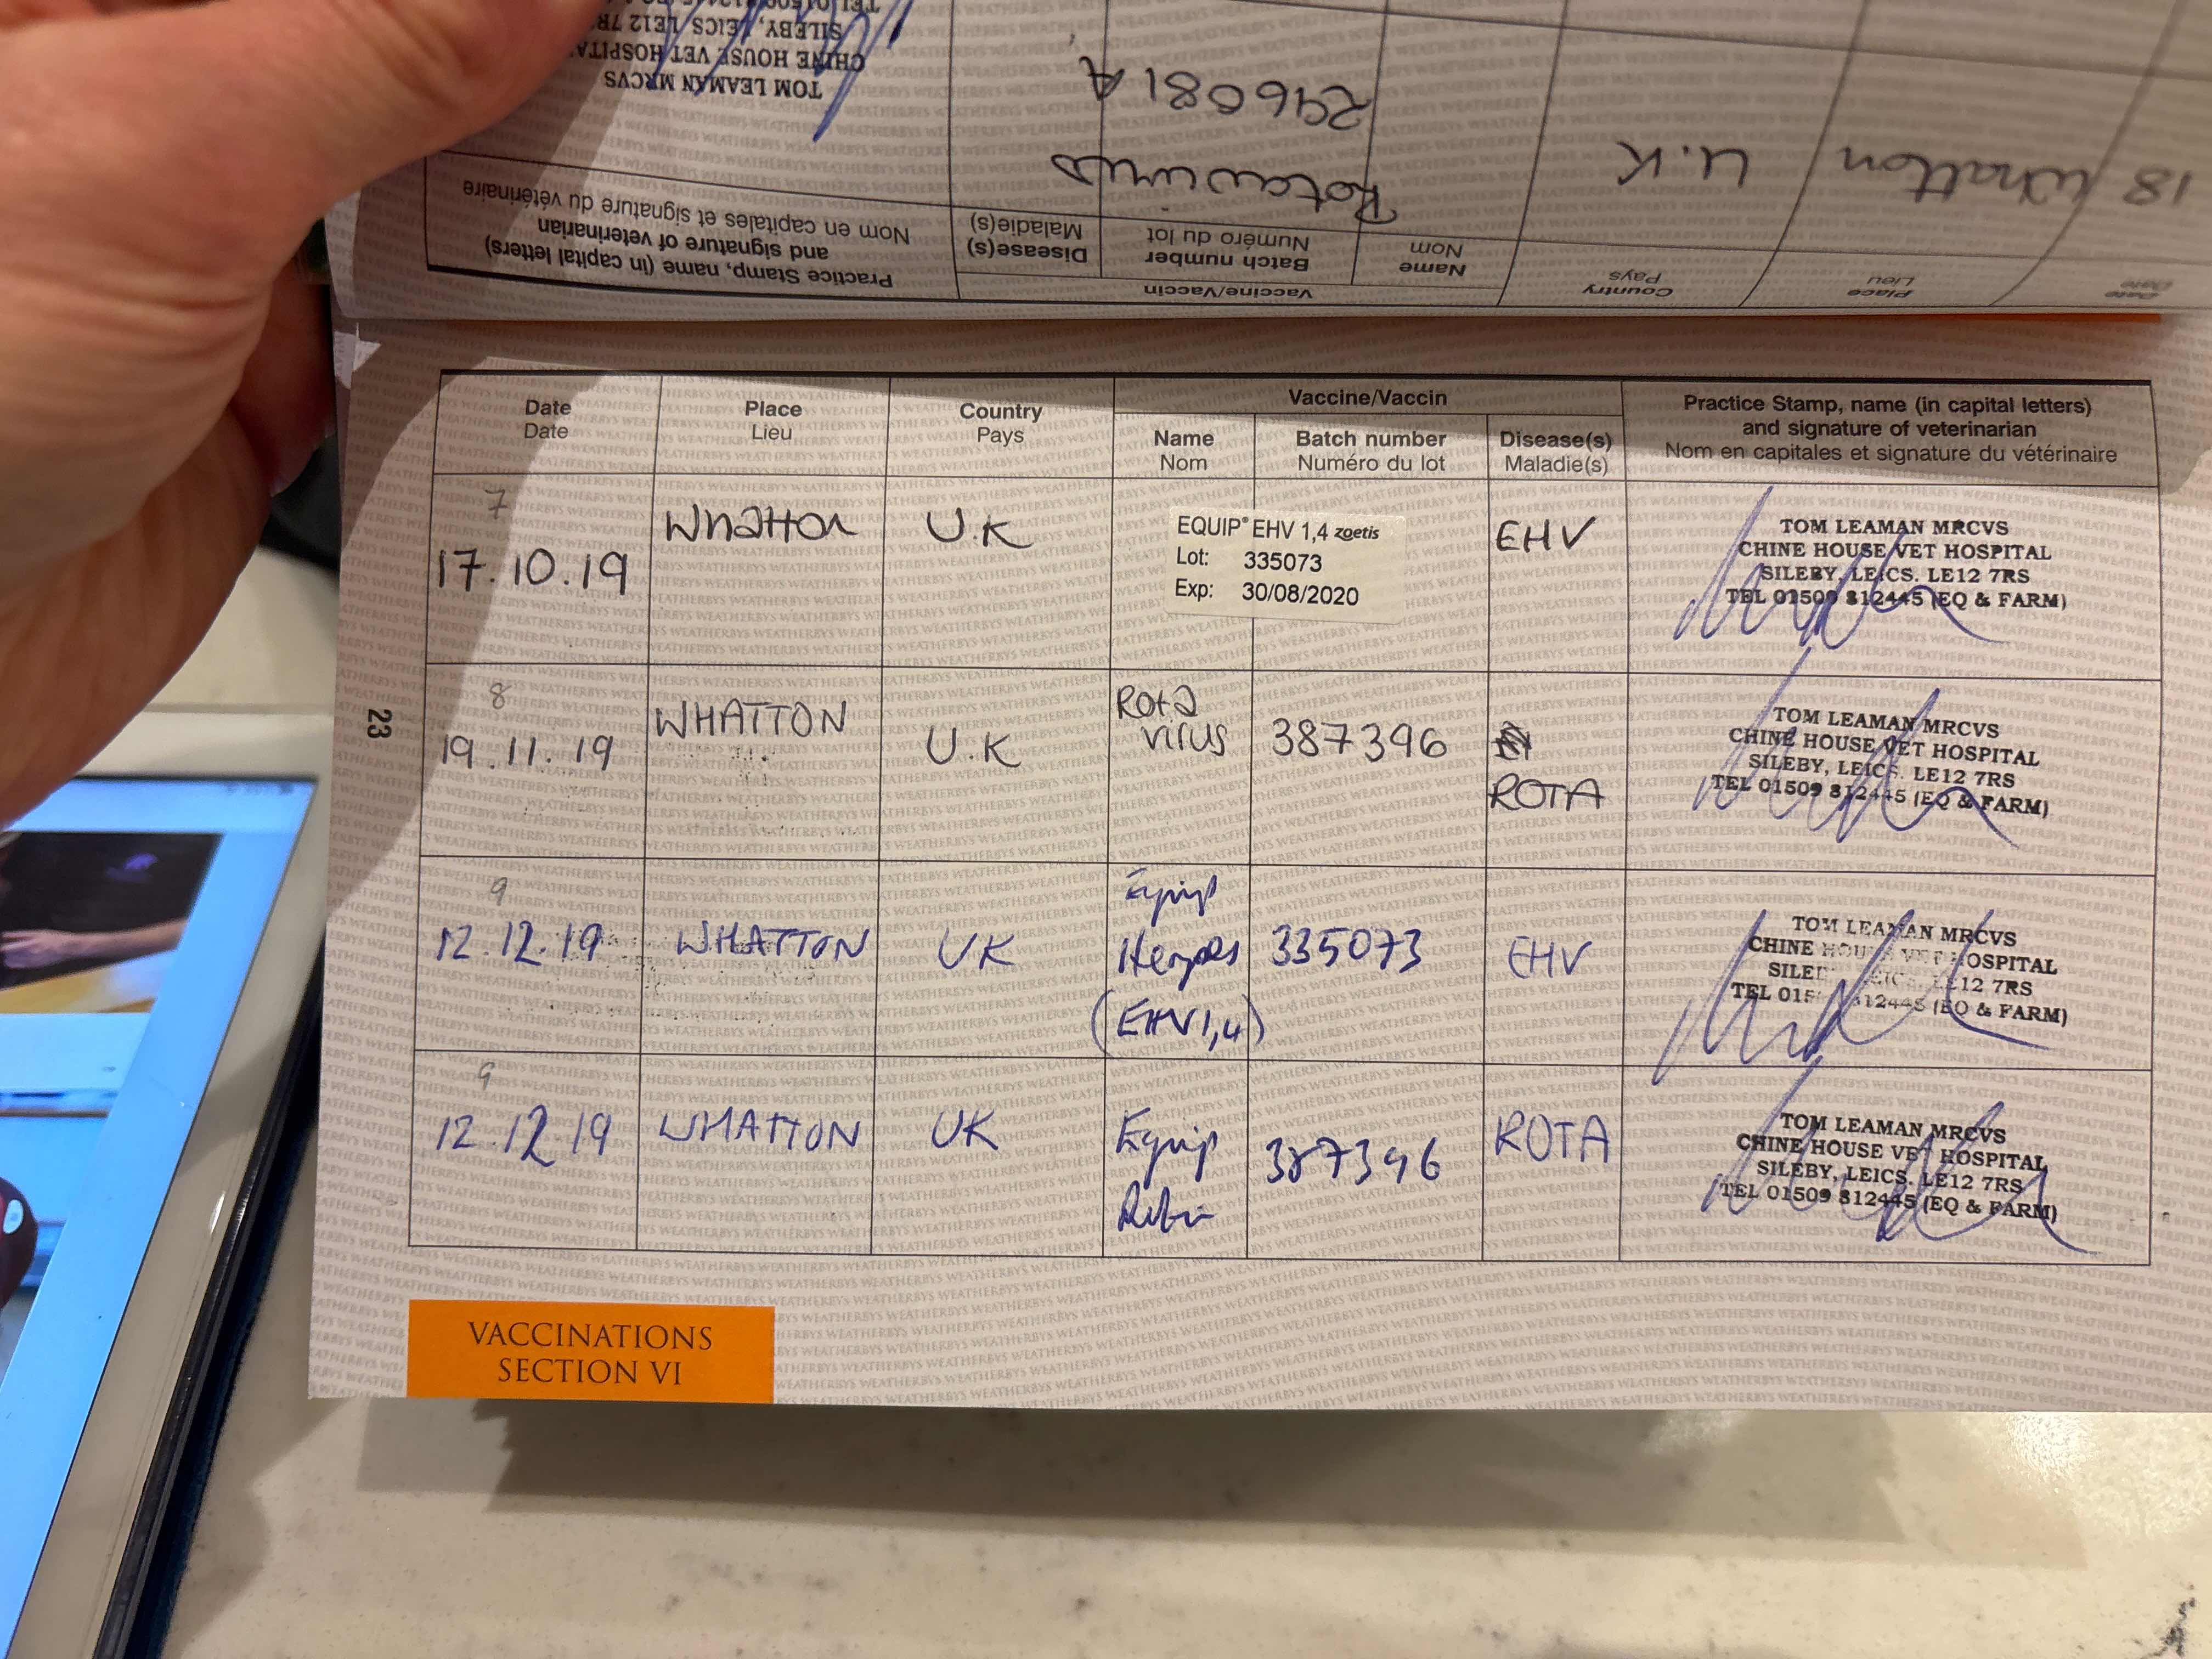 TEL 01509 812445
SILEBY, LEICS LE12 7RS
CHINE HOUSE VET HOSPITAL
TOM LEAMAN MRCVS
296081 A
18 Whatton U.K Rotavirus
Date Date
Place Lieu
Country Pays
Vaccine/Vaccin
Name Nom
Batch number Numéro du lot
Disease(s) Maladie(s)
Practice Stamp, name (in capital letters)
and signature of veterinarian
Nom en capitales et signature du vétérinaire
Date Date
Place Lieu
Country Pays
Vaccine/Vaccin
Name Nom
Batch number Numéro du lot
Disease(s) Maladie(s)
Practice Stamp, name (in capital letters)
and signature of veterinarian
Nom en capitales et signature du vétérinaire
7
17.10.19
Whatton
U.K
EQUIP® EHV 1,4 zoetis
Lot: 335073
Exp: 30/08/2020
EHV
TOM LEAMAN MRCVS
CHINE HOUSE VET HOSPITAL
SILEBY, LEICS. LE12 7RS
TEL 01509 812445 (EQ & FARM)
8
19.11.19
WHATTON
U.K
Rota
virus
387396
ROTA
TOM LEAMAN MRCVS
CHINE HOUSE VET HOSPITAL
SILEBY, LEICS. LE12 7RS
TEL 01509 812445 (EQ & FARM)
9
12.12.19
WHATTON
UK
Equip
Herpes
(EHV1,4)
335073
EHV
TOM LEAMAN MRCVS
CHINE HOUSE VET HOSPITAL
SILEBY, LEICS. LE12 7RS
TEL 01509 812445 (EQ & FARM)
9
12.12.19
WHATTON
UK
Equip
387396
ROTA
TOM LEAMAN MRCVS
CHINE HOUSE VET HOSPITAL
SILEBY, LEICS. LE12 7RS
TEL 01509 812445 (EQ & FARM)
23
VACCINATIONS
SECTION VI
WEATHERBYS